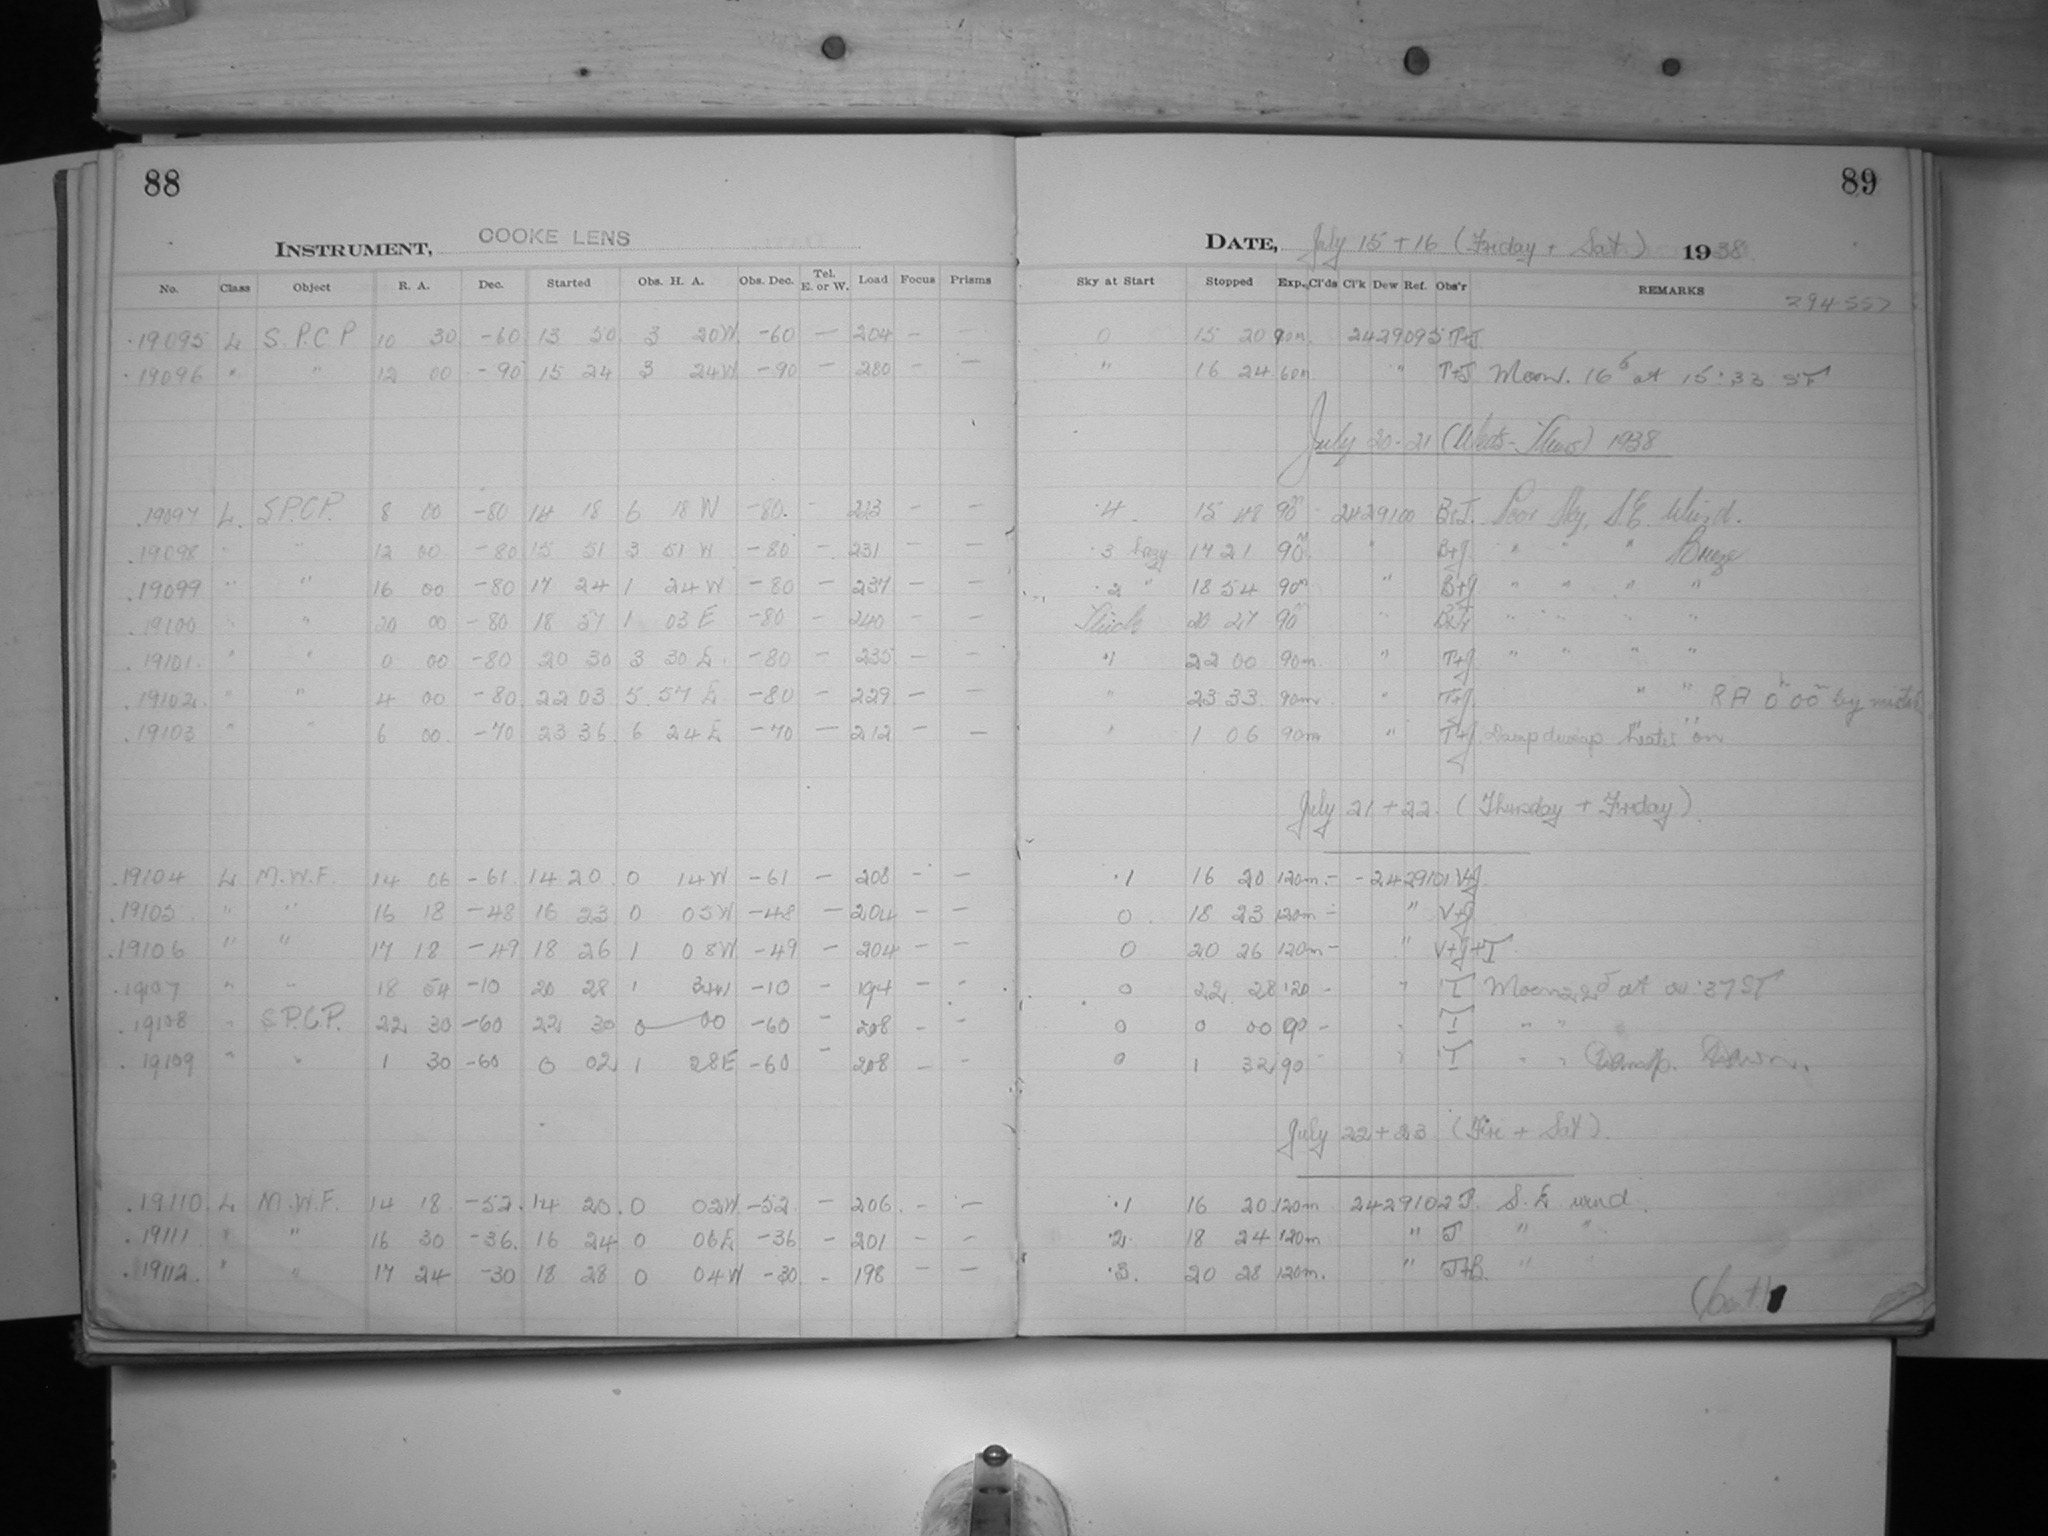 88
INSTRUMENT, COOKE LENS
No. Class Object R. A. Dec. Started Obs. H. A. Obs. Dec. Tel. E. or W. Load Focus Prisms
19095 L S.P.C.P 10 30 -60 13 50 3 20W -60 — 204 — —
19096 " " 12 00 -90 15 24 3 24W -90 — 280 — —
19097 L. S.P.C.P. 8 00 -80 14 18 6 18 W -80. - 223 — —
19098 " " 12 00 -80 15 51 3 51 W -80 - 231 — —
19099 " " 16 00 -80 17 24 1 24 W -80 — 237 — —
19100 " " 20 00 -80 18 57 1 03 E -80 — 240 — —
19101. " " 0 00 -80 20 30 3 30 E. -80 — 235 — —
19102. " " 4 00 -80 22 03 5 57 E -80 — 229 — —
19103 " " 6 00. -70 23 36 6 24 E -70 — 212 — —
19104 L M.W.F. 14 06 -61 14 20 0 14W -61 — 208 — —
19105 " " 16 18 -48 16 23 0 05W -48 — 204 — —
19106 " " 17 18 -49 18 26 1 08W -49 — 204 — —
19107 " " 18 54 -10 20 28 1 34W -10 — 194 — —
19108 " S.P.C.P. 22 30 -60 22 30 0 — 00 -60 — 208 — —
19109 " " 1 30 -60 0 02 1 28E -60 — 208 — —
19110 L M.W.F. 14 18 -52. 14 20. 0 02W -52 — 206. — —
19111 " " 16 30 -36. 16 24 0 06E -36 — 201 — —
19112. " " 17 24 -30 18 28 0 04W -30 - 198 — —
89
DATE, July 15 + 16 (Friday + Sat) 1938
Sky at Start Stopped Exp. Cl'ds Cl'k Dew Ref. Obs'r REMARKS
294557
0 15 20 90m 2429095 T+J.
" 16 24 60m " T+J Moon. 16° at 15:33 ST
July 20-21 (Weds-Thurs) 1938
.4 15 48 90m 2429100 B+J. Poor Sky, S.E. Wind.
.3 hazy 17 21 90m " B+J. " " " Breeze
.2 " 18 54 90m " B+J " " " "
Thick 20 27 90m " " " " "
.1 22 00 90m. " T+J. " " " "
" 23 33. 90m " T+J. " " R A 0h 00m by mistake
" 1 06 90m " T+J. Damp dewcap "heater" on
July 21 + 22. (Thursday + Friday).
.1 16 20 120m. - - 2429101 V+J.
0. 18 23 120m - " V+J
0 20 26 120m - " V+J+T
0 22 28 120 - " T Moon at ST
0 0 00 90 - " T " "
0 1 32 90 - " T " " Damp. Dawn.
July 22 + 23 (Fri + Sat).
.1 16 20 120m 2429102 J. S.E wind.
.2. 18 24 120m " J " "
.3. 20 28 120m. " J+B. "